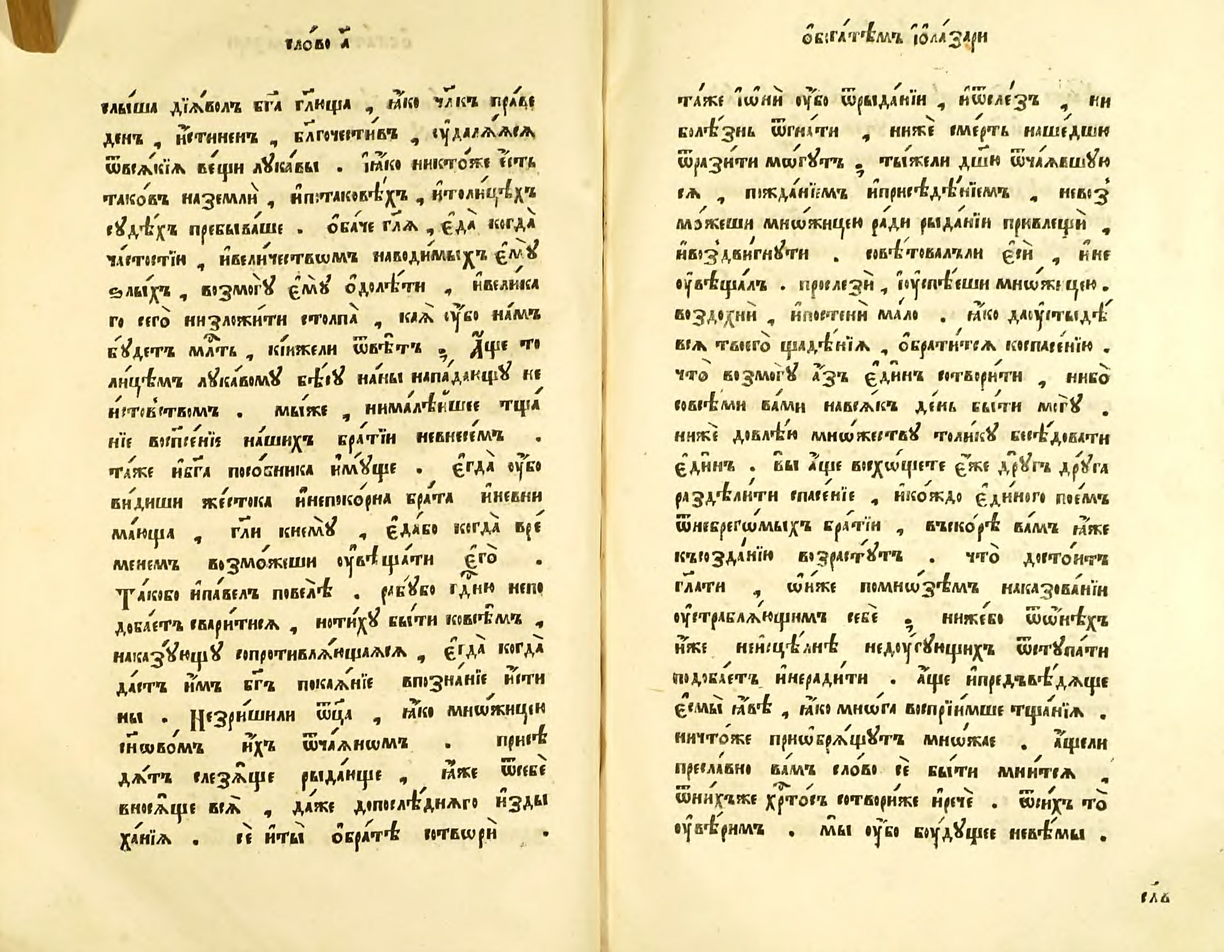 сло́во а҃
слы́ша дїѧ́волъ бг҃а гл҃юща , ꙗ҆́ко чл҃къ пра́ве
денъ , и҆́стиненъ , бл҃гочести́въ , ѹ҆далѧ́ѧсѧ
ѿвсѧ́кїѧ ве́щи лꙋка́вы . і҆ꙗ́ко никто́же є҆́сть
тако́въ наземлѝ , и҆пᲂтаковѣ́хъ , и҆толи́цѣхъ
сꙋдѣ́хъ пребыва́ше . ѻ҆ба́че гл҃ѧ , є҆да̀ когда̀
ча́стостїи , и҆вели́чествѡмъ наводи́мыхъ є҆мꙋ̀
ѕлы́хъ , возмогꙋ̀ є҆мꙋ̀ ѻ҆долѣ́ти , и҆вели́ка
го сего̀ низложи́ти столпа̀ , ка́ѧ ѹ҆́бо на́мъ
бꙋ́детъ мл҃ть , кі́ижели ѿвѣ́тъ ; А҆́ще то
ли́цѣмъ лꙋка́вомꙋ бѣ́сꙋ на́ны напа́дающꙋ не
и҆́стовствомъ . мы́же , нималѣ́йшее тща́
нїе воспсе́нїе на́шихъ бра́тїи невнесе́мъ .
та́же и҆бг҃а посо́бника и҆мꙋ́ще . є҆гда̀ ѹ҆́бо
ви́диши же́стока и҆непоко́рна бра́та и҆невни
ма́юща , гл҃и кнемꙋ̀ , є҆да́бо когда̀ вре́
менемъ возмо́жеши ѹ҆вѣща́ти є҆го̀ .
Та́кобо и҆па́велъ повелѣ̀ . рабꙋ́бо гд҇ню непо
доба́етъ сва́ритисѧ , но́тихꙋ бы́ти ковсѣ́мъ ,
наказꙋ́ющꙋ сопротивлѧ́ющаѧсѧ , є҆гда̀ когда̀
да́стъ и҆̀мъ бг҃ъ покаѧ́нїе впозна́нїе и҆́сти
ны . Незри́шили ѻ҆ц҃а̀ , ꙗ҆́ко мно́жицею
сн҃ѡво́мъ и҆́хъ ѿча́ѧнѡмъ . присѣ
дѧ́тъ слезѧ́ще рыда́юще , ꙗ҆́же ѿсебѐ
вносѧ́ще всѧ̀ , да́же допослѣ́днѧго и҆зды
ха́нїѧ . сѐ и҆ты̀ ѻ҆бра́тѣ сотворѝ .
ѻ҆бога́тѣмъ і҆ѻла́зари
та́же і҆ѡ́нѝ ѹ҆́бо ѿрыда́нїи , и҆ѿсле́зъ , ни
болѣ́знь ѿгна́ти , нижѐ сме́рть наше́дшю
ѿрази́ти мо́гꙋтъ ; ты́жели дш҃ю ѿча́ѧвшꙋю
сѧ , пᲂжда́нїемъ и҆присѣдѣ́нїемъ , невоз̾
мо́жеши мно́жицею ра́ди рыда́нїи привлещѝ ,
и҆воздви́гнꙋти . совѣ́товалъли є҆сѝ , и҆не
ѹ҆вѣща́лъ . прослезѝ , і҆ѹспѣ́еши мно́жицею .
воздохнѝ , и҆постенѝ ма́ло . ꙗ҆́ко даѹ҆сты́дѣ
всѧ твоего̀ щадѣ́нїѧ , ѻ҆брати́тсѧ коспасе́нїю .
что̀ возмогꙋ̀ а҆́зъ є҆ди́нъ сотвори́ти , нибо̀
совсѣ́ми ва́ми навсѧ́къ де́нь бы́ти могꙋ̀ .
нижѐ довлѣ́ю мно́жествꙋ толи́кꙋ бесѣ́довати
є҆ди́нъ . вы̀ а҆́ще восхо́щете є҆́же дрꙋ́гъ дрꙋ́га
раздѣли́ти спасе́нїе , и҆ко́ждо є҆ди́ного пое́мъ
ѿнебрего́мыхъ бра́тїи , въско́рѣ ва́мъ ꙗ҆́же
късозда́нїю возрастꙋ́тъ . что̀ досто́итъ
гл҃ати , ѡ҆ни́же помно́зѣмъ наказова́нїи
ѹ҆страблѧ́ющимъ себѐ ; нижебо̀ ѿѻ҆нѣ́хъ
и҆̀же неисцѣ́лнѣ недо́ѹгꙋющихъ ѿстꙋпа́ти
подоба́етъ и҆неради́ти . а҆́ще и҆предъвѣ́дѧще
є҆смы̀ ꙗ҆́вѣ , ꙗ҆́ко мно́га воспрїи́мше тща́нїѧ .
ничто́же приѻ҆брѧ́щꙋтъ мно́жае . а҆́щели
пресла́вно ва́мъ сло́во сѐ бы́ти мни́тсѧ ,
ѿни́хъже хр҇то́съ сотвори́же и҆речѐ . ѿси́хъ то̀
ѹ҆вѣ́римъ . мы̀ ѹ҆́бо бо́ѹдꙋщее невѣ́мы .
сл҃ь